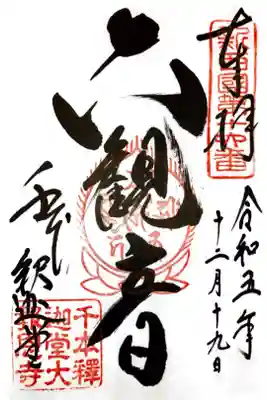 奉拝
新西國第十六番
令和五年
十二月十九日
六観音
千本釈迦堂
千本釋
迦堂大
報恩寺